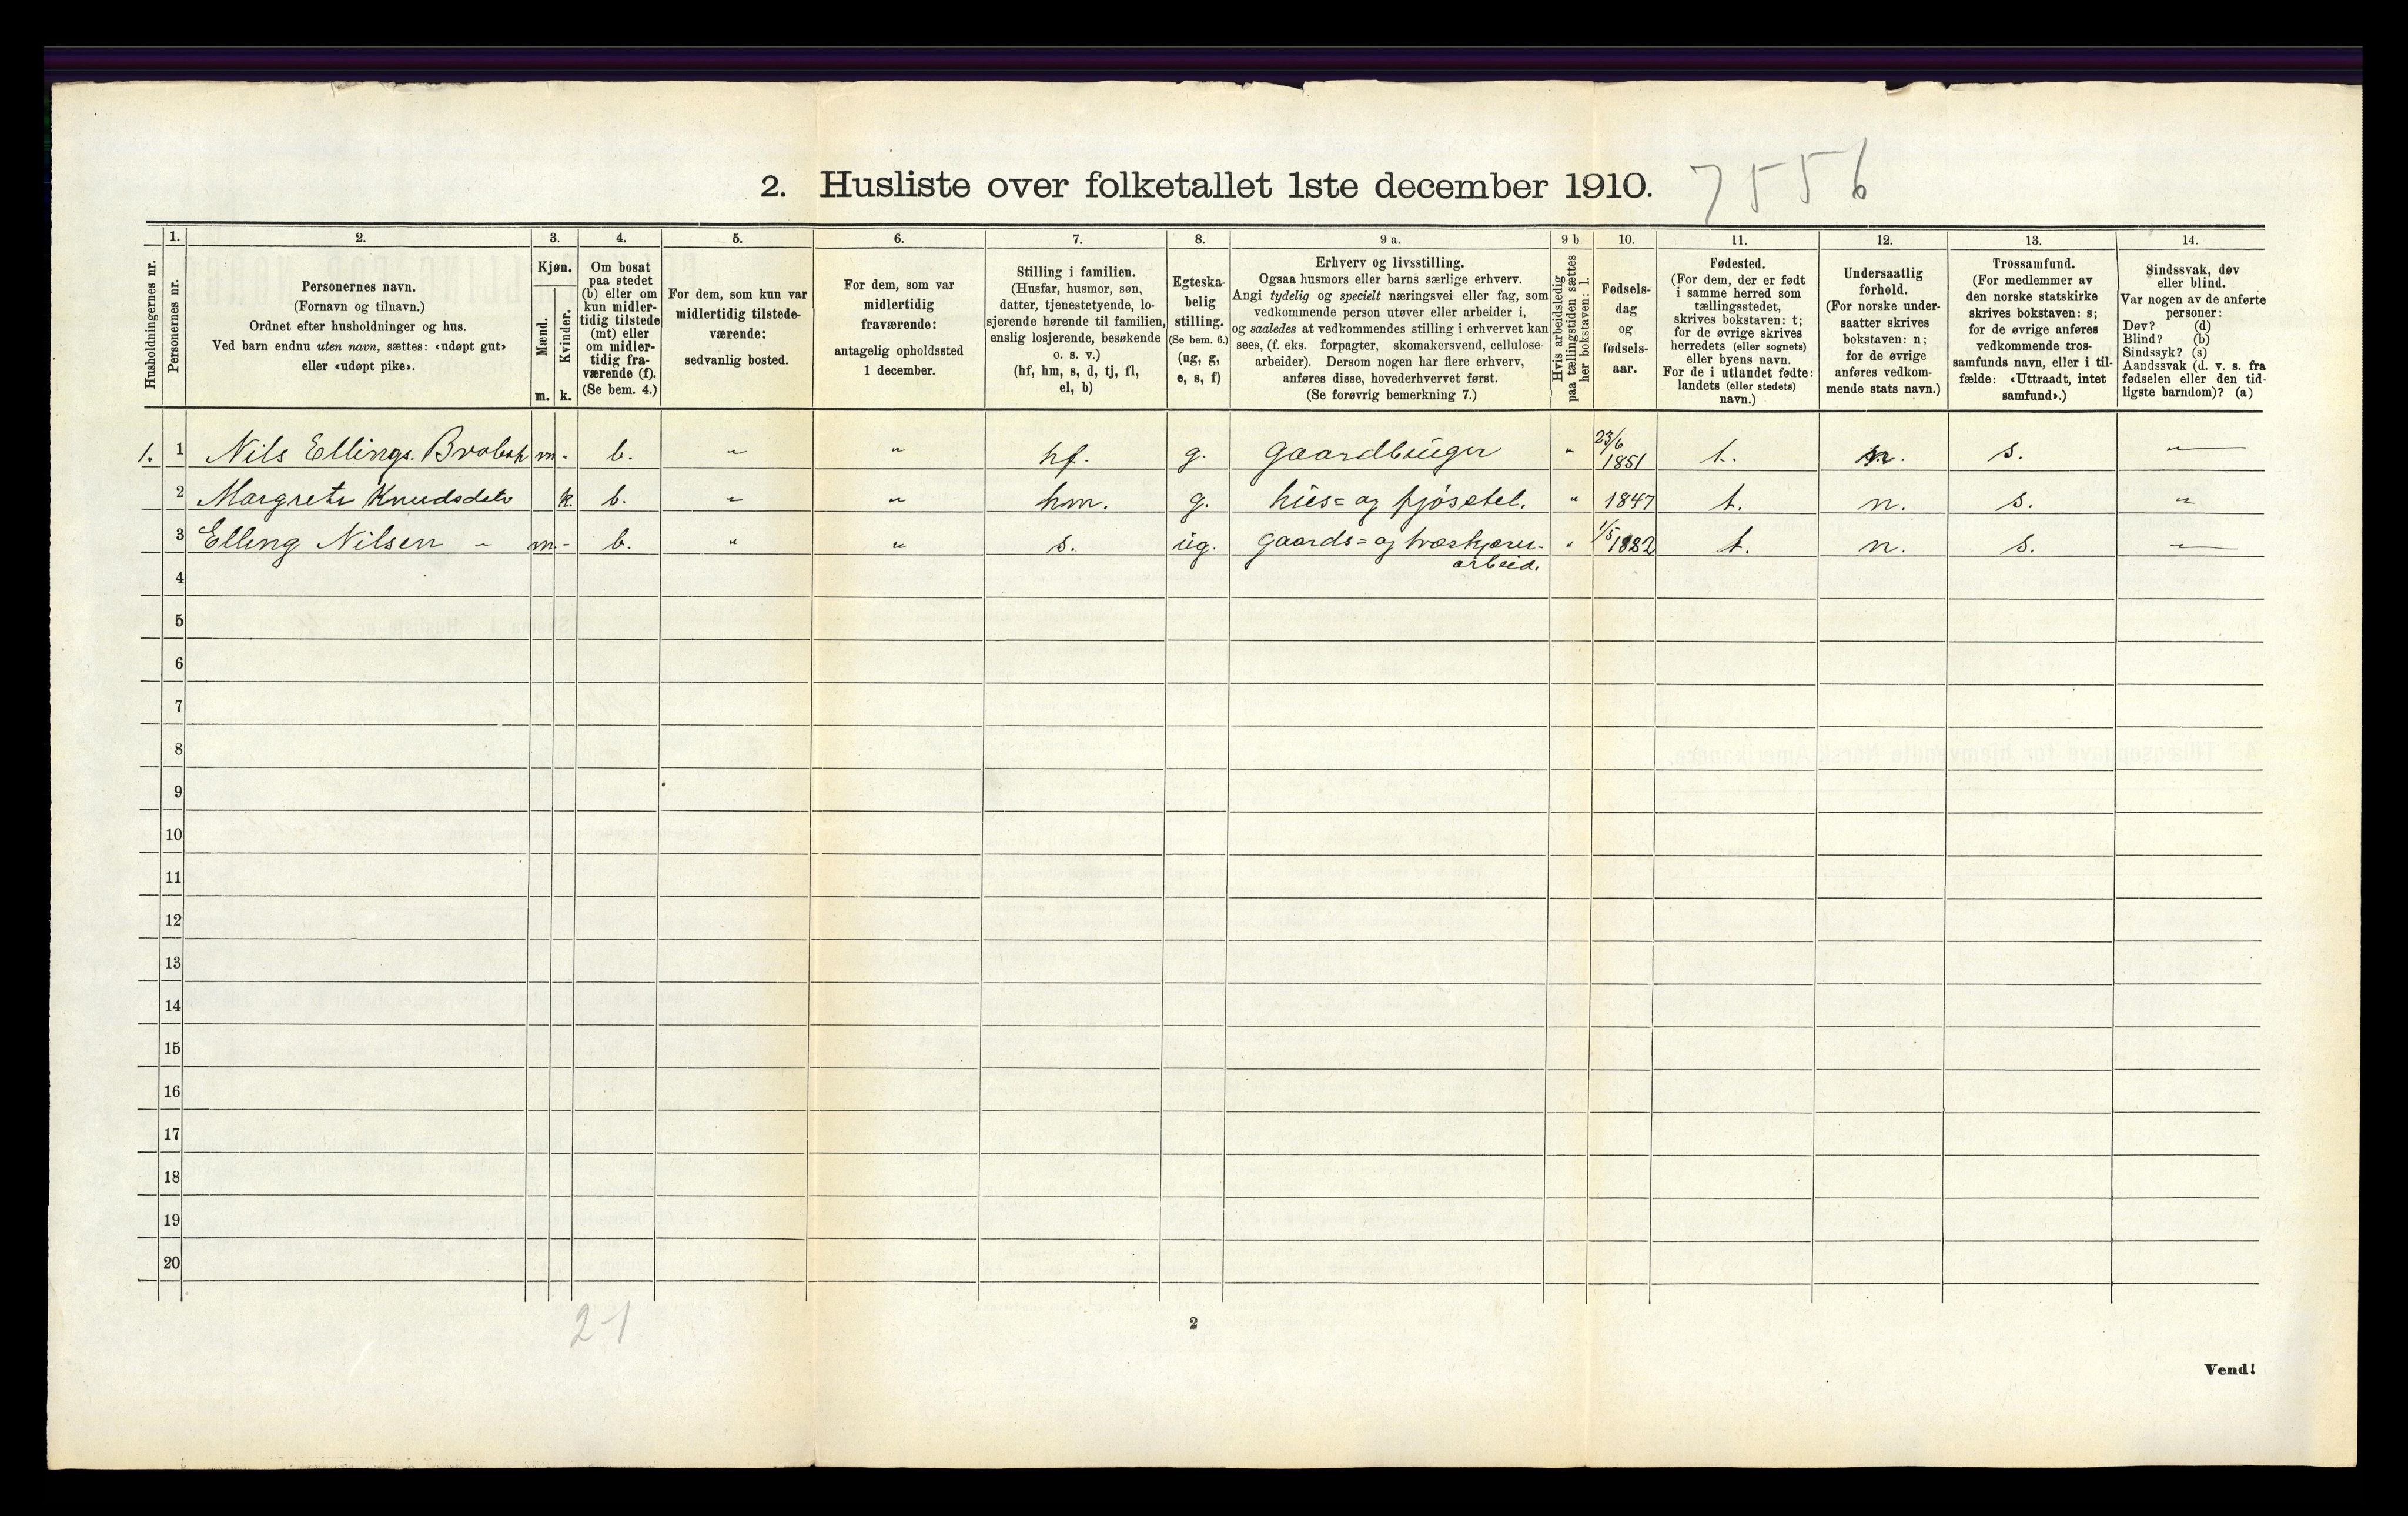 2. Husliste over folketallet 1ste december 1910. 7556
Husholdningernes nr.
1.
Personernes nr.
2.
Personernes navn.
(Fornavn og tilnavn.)
Ordnet efter husholdninger og hus.
Ved barn endnu uten navn, sættes: «udøpt gut»
eller «udøpt pike».
3.
Kjøn.
Mænd.
m.
Kvinder.
k.
4.
Om bosat
paa stedet
(b) eller om
kun midler-
tidig tilstede
(mt) eller
om midler-
tidig fra-
værende (f).
(Se bem. 4.)
5.
For dem, som kun var
midlertidig tilstede-
værende:
sedvanlig bosted.
6.
For dem, som var
midlertidig
fraværende:
antagelig opholdssted
1 december.
7.
Stilling i familien.
(Husfar, husmor, søn,
datter, tjenestetyende, lo-
sjerende hørende til familien,
enslig losjerende, besøkende
o. s. v.)
(hf, hm, s, d, tj, fl,
el, b)
8.
Egteska-
belig
stilling.
(Se bem. 6.)
(ug, g,
e, s, f)
9 a.
Erhverv og livsstilling.
Ogsaa husmors eller barns særlige erhverv.
Angi tydelig og specielt næringsvei eller fag, som
vedkommende person utøver eller arbeider i,
og saaledes at vedkommendes stilling i erhvervet kan
sees, (f. eks. forpagter, skomakersvend, cellulose-
arbeider). Dersom nogen har flere erhverv,
anføres disse, hovederhvervet først.
(Se forøvrig bemerkning 7.)
9 b
Hvis arbeidsledig
paa tællingstiden sættes
her bokstaven: l.
10.
Fødsels-
dag
og
fødsels-
aar.
11.
Fødested.
(For dem, der er født
i samme herred som
tællingsstedet,
skrives bokstaven: t;
for de øvrige skrives
herredets (eller sognets)
eller byens navn.
For de i utlandet fødte:
landets (eller stedets)
navn.)
12.
Undersaatlig
forhold.
(For norske under-
saatter skrives
bokstaven: n;
for de øvrige
anføres vedkom-
mende stats navn.)
13.
Trossamfund.
(For medlemmer av
den norske statskirke
skrives bokstaven: s;
for de øvrige anføres
vedkommende tros-
samfunds navn, eller i til-
fælde: «Uttraadt, intet
samfund».)
14.
Sindssvak, døv
eller blind.
Var nogen av de anførte
personer:
Døv? (d)
Blind? (b)
Sindssyk? (s)
Aandssvak (d. v. s. fra
fødselen eller den tid-
ligste barndom)? (a)
1. 1 Nils Ellings. m - b. " " hf. g. gaardbruger " 23/6 1851 t. n. s. "
2 Margrete Knudsdatr k. b. " " hm. g. hus= og fjøsstel. " 1847 t. n. s. "
3 Elling Nilsen " m. - b. " " s. ug. gaards= og træskjærer- " 1/5 1882 t. n. s. "
arbeid.
4
5
6
7
8
9
10
11
12
13
14
15
16
17
18
19
20
2-1
2
Vend!